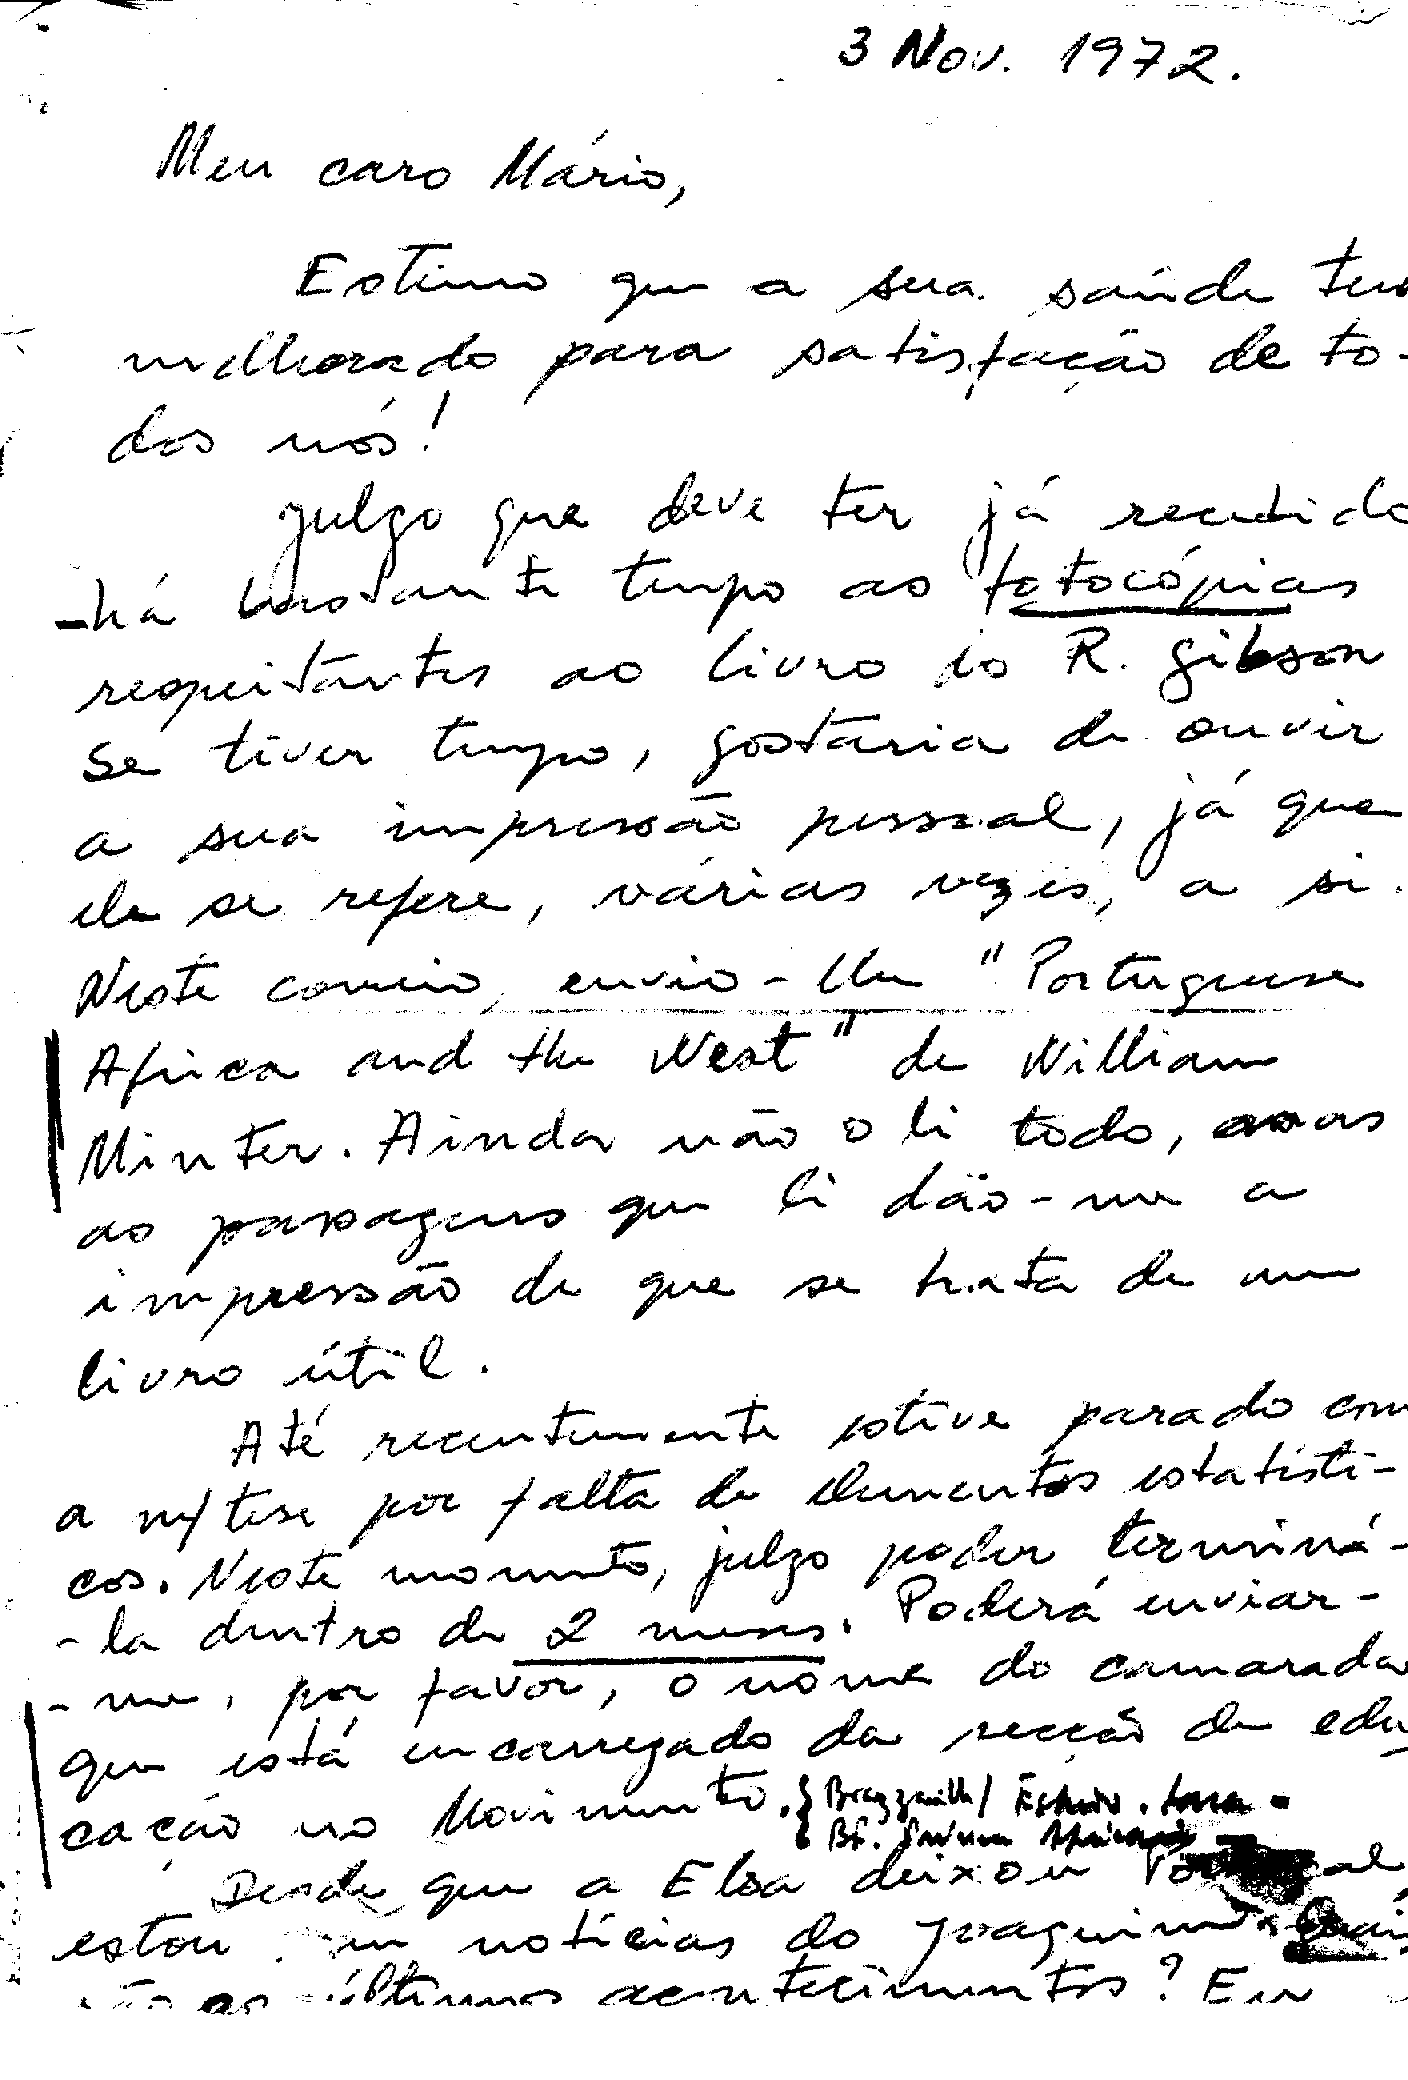 3 Nov. 1972.
Meu caro Mário,
Estimo que a sua saúde tem
melhorado para satisfação de to-
dos nós!
Julgo que deve ter já recebido
-há bastante tempo as fotocópias
respeitantes ao livro do R. Gibson
Se tiver tempo, gostaria de ouvir
a sua impressão pessoal, já que
ele se refere, várias vezes, a si.
Neste correio, envio-lhe "Portuguese
Africa and the West" de William
Minter. Ainda não o li todo, mas
as passagens que li dão-me a
impressão de que se trata de um
livro útil.
Até recentemente estive parado com
a m/tese por falta de elementos estatísti-
cos. Neste momento, julgo poder terminá-
-la dentro de 2 meses. Poderá enviar-
-me, por favor, o nome do camarada
que está encarregado da secção de edu
cação no Movimento. Brazzaville/
Desde que a Elsa deixou Portugal,
estou sem notícias do Joaquim. Quais
são os últimos acontecimentos? Eu